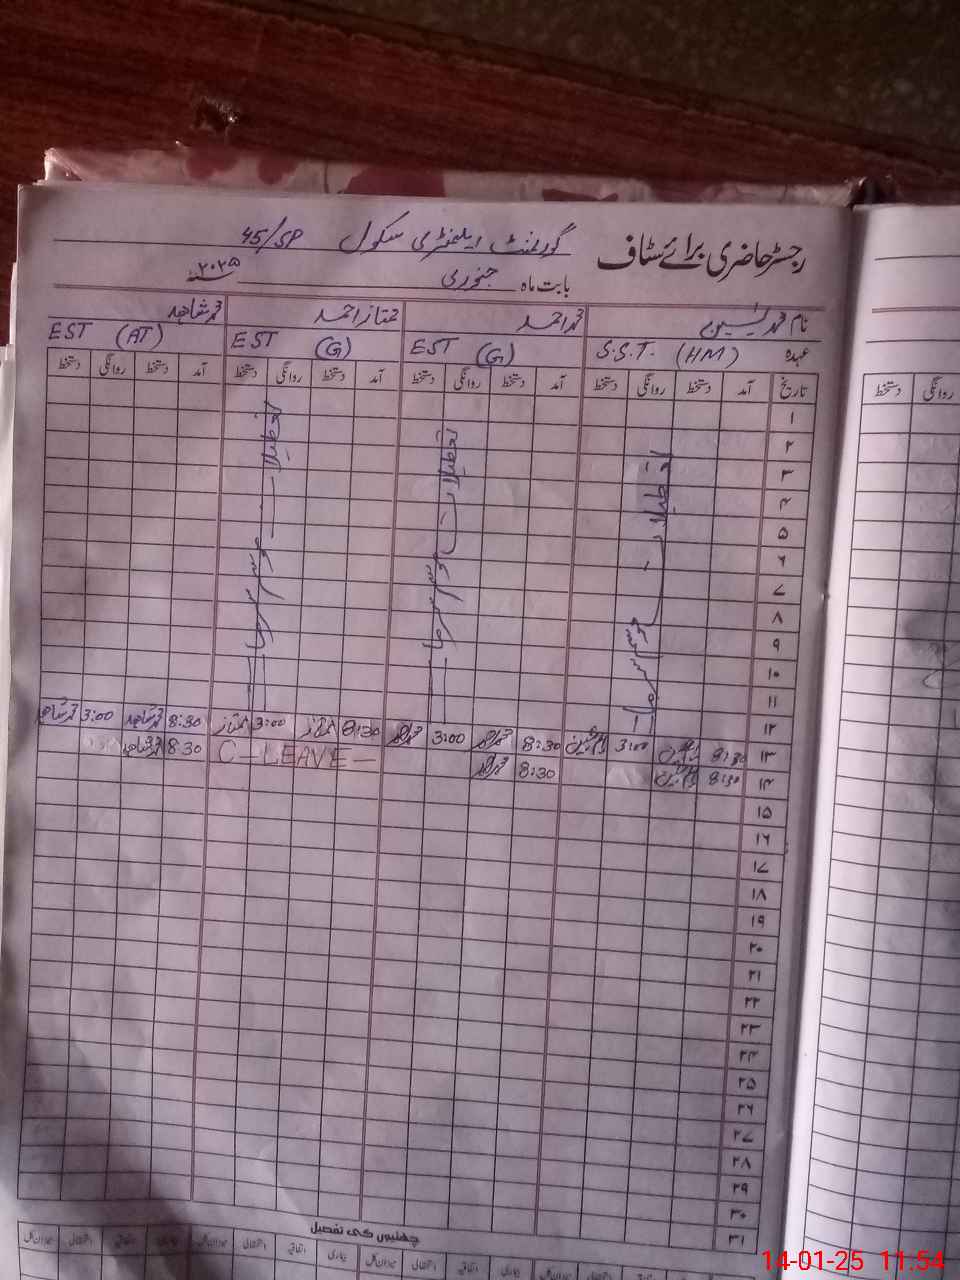 رجسٹر حاضری برائے سٹاف گورنمنٹ ایلیمنٹری سکول 45/SP
بابت ماہ جنوری ۲۰۲۵
نام محمد یٰسین محمد احمد ممتاز احمد محمد شاہد
عہدہ S.S.T. (HM) EST (G) EST (G) EST (AT)
تاریخ آمد دستخط روانگی دستخط آمد دستخط روانگی دستخط آمد دستخط روانگی دستخط آمد دستخط روانگی دستخط
روانگی دستخط
۱
۲
۳
۴
۵
۶
۷
۸
۹
۱۰
۱۱
۱۲
۱۳ 8:30 3:00 8:30 3:00 8:30 ممتاز 3:00 ممتاز 8:30 محمد شاہد 3:00 محمد شاہد
۱۴ 8:30 8:30 C-LEAVE- 8:30 محمد شاہد
۱۵
۱۶
۱۷
۱۸
۱۹
۲۰
۲۱
۲۲
۲۳
۲۴
۲۵
۲۶
۲۷
۲۸
۲۹
۳۰
۳۱
موسم سرما تعطیلات موسم سرما تعطیلات موسم سرما تعطیلات
چھٹیوں کی تفصیل
14-01-25 11:54